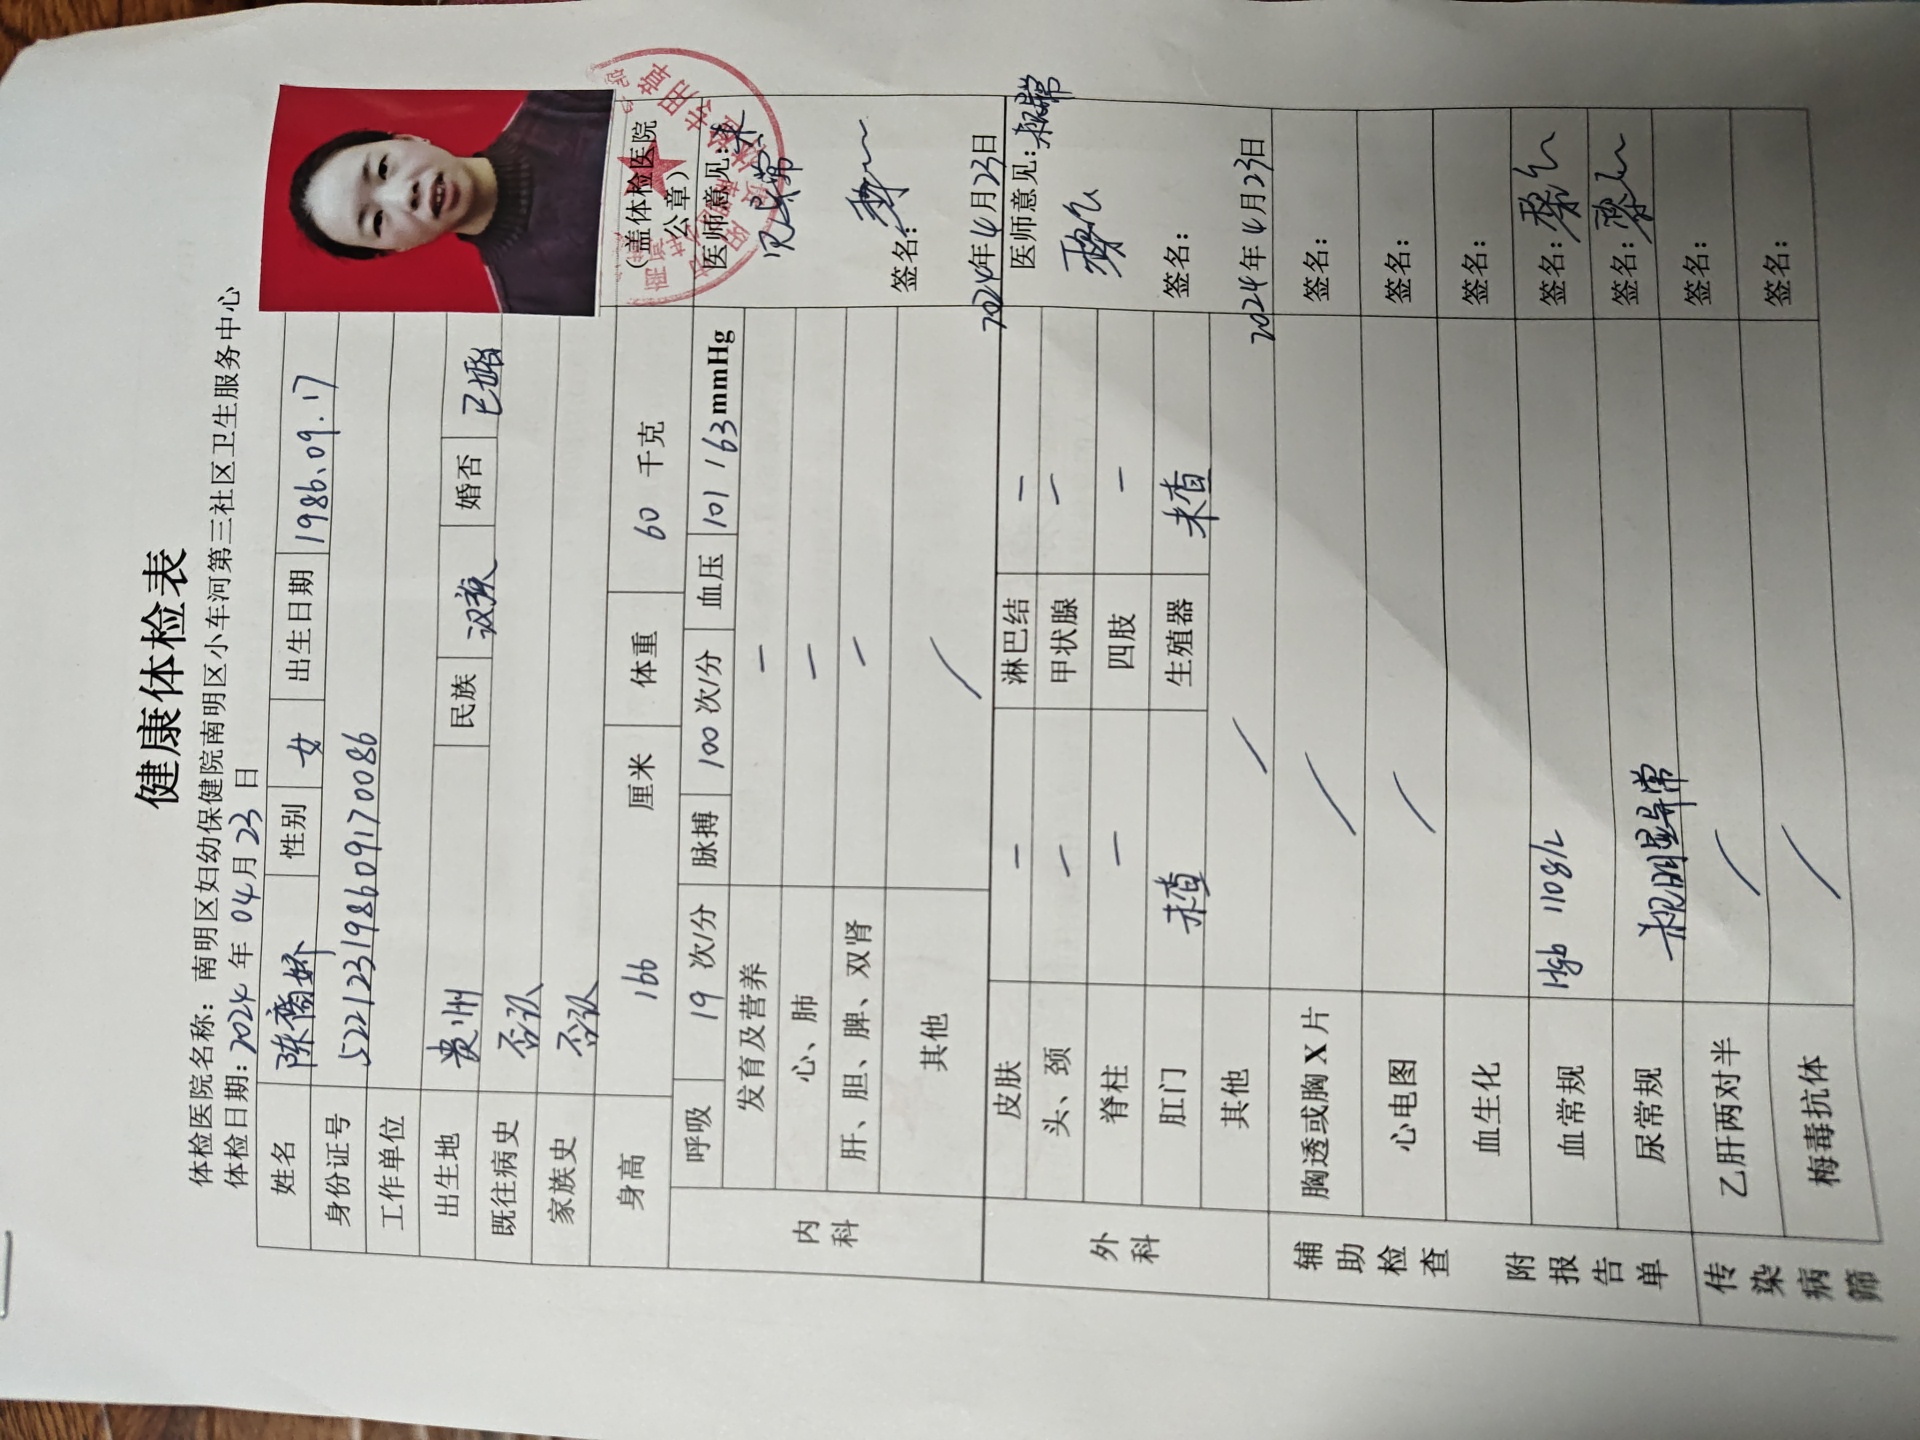 健康体检表
体检医院名称：南明区妇幼保健院南明区小车河第三社区卫生服务中心
体检日期：2024 年 04 月 23 日
姓名 性别 女 出生日期 1986.09.17
身份证号 522123198609170086
工作单位
出生地 贵州 民族 汉族 婚否 已婚
既往病史 否认
家族史 否认
身高 166 厘米 体重 60 千克
（盖体检医院公章）
内科
呼吸 19 次/分 脉搏 100 次/分 血压 101 / 63 mmHg
发育及营养 —
心、肺 —
肝、胆、脾、双肾 —
其他 /
医师意见：未见异常
签名：
2024年4月23日
外科
皮肤 — 淋巴结 —
头、颈 — 甲状腺 —
脊柱 — 四肢 —
肛门 未查 生殖器 未查
其他 /
医师意见：
签名：
2024年4月23日
辅助检查 附报告单
胸透或胸 X 片 / 签名：
心电图 / 签名：
血生化 签名：
血常规 Hgb 110g/L 签名：
尿常规 无明显异常 签名：
传染病筛
乙肝两对半 / 签名：
梅毒抗体 / 签名：